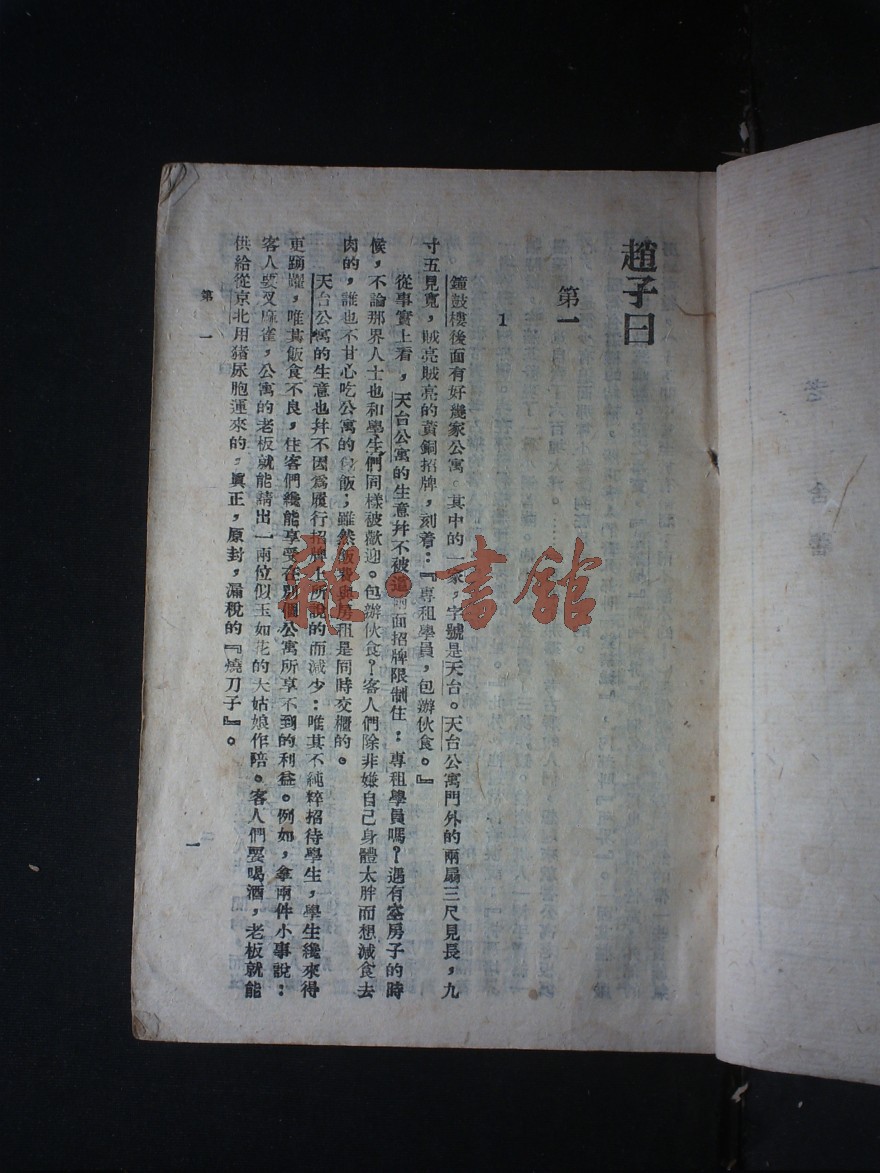 趙子曰
第一
1
鐘鼓樓後面有好幾家公寓。其中的一家，字號是天台。天台公寓門外的兩扇三尺見長，九
寸五見寬，賊亮賊亮的黃銅招牌，刻着：『專租學員，包辦伙食。』
從事實上看，天台公寓的生意幷不被這面招牌限制住：專租學員嗎？遇有空房子的時
候，不論那界人士也和學生們同樣被歡迎。包辦伙食？客人們除非嫌自己身體太胖而想減食去
肉的，誰也不甘心吃公寓的飯；雖然飯費與房租是同時交櫃的。
天台公寓的生意也幷不因爲履行招牌上所說的而減少：唯其不純粹招待學生，學生纔來得
更踴躍，唯其飯食不良，住客們纔能享受在別個公寓所享不到的利益。例如，拿兩件小事說：
客人要叉麻雀，公寓的老板就能請出一兩位似玉如花的大姑娘作陪。客人們要喝酒，老板就能
供給從京北用猪尿胞運來的，眞正，原封，漏稅的『燒刀子』。
第一
一
老舍著
雜·書館